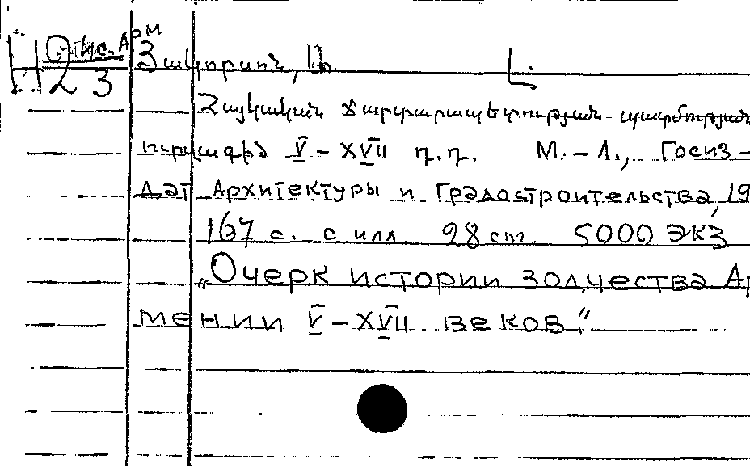 Н Отис. Арм
Н23 Յակոբսոն, Ա. Լ.
Հայկական ճարտարապետության պատմության
ուրվագիծ V – XVII դ.դ. М.-Л., Госиз-
дат Архитектуры и Градостроительства, 19
167 с. с илл 28 см. 5000 экз
„Очерк истории зодчества Ар
мении V – XVII веков“